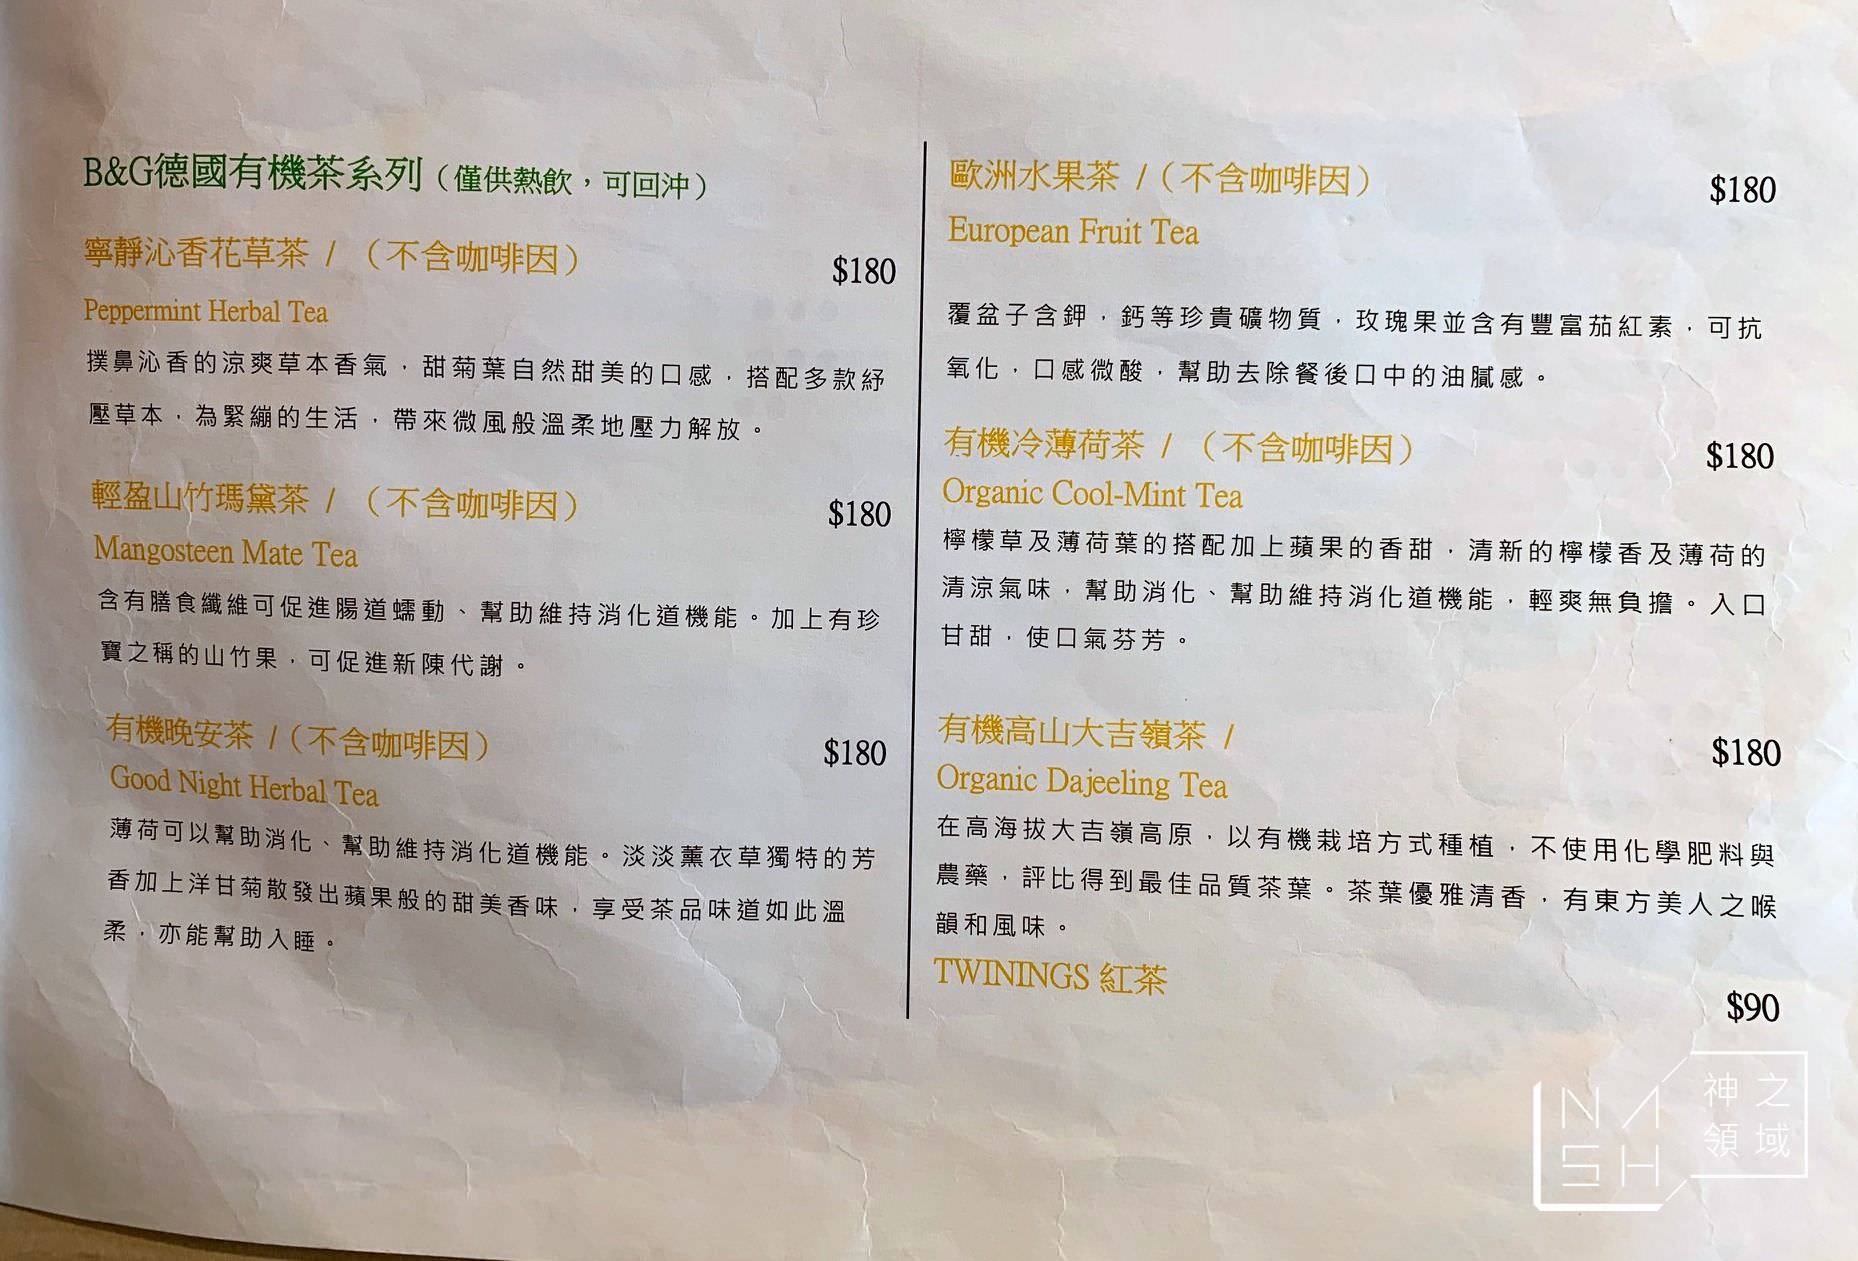 B&G德國有機茶系列（僅供熱飲，可回沖）
寧靜沁香花草茶 / （不含咖啡因）
$180
Peppermint Herbal Tea
撲鼻沁香的涼爽草本香氣，甜菊葉自然甜美的口感，搭配多款紓
壓草本，為緊繃的生活，帶來微風般溫柔地壓力解放。
輕盈山竹瑪黛茶 / （不含咖啡因）
$180
Mangosteen Mate Tea
含有膳食纖維可促進腸道蠕動、幫助維持消化道機能。加上有珍
寶之稱的山竹果，可促進新陳代謝。
有機晚安茶 /（不含咖啡因）
$180
Good Night Herbal Tea
薄荷可以幫助消化、幫助維持消化道機能。淡淡薰衣草獨特的芳
香加上洋甘菊散發出蘋果般的甜美香味，享受茶品味道如此溫
柔，亦能幫助入睡。
歐洲水果茶 /（不含咖啡因）
$180
European Fruit Tea
覆盆子含鉀，鈣等珍貴礦物質，玫瑰果並含有豐富茄紅素，可抗
氧化，口感微酸，幫助去除餐後口中的油膩感。
有機冷薄荷茶 / （不含咖啡因）
$180
Organic Cool-Mint Tea
檸檬草及薄荷葉的搭配加上蘋果的香甜，清新的檸檬香及薄荷的
清涼氣味，幫助消化、幫助維持消化道機能，輕爽無負擔。入口
甘甜，使口氣芬芳。
有機高山大吉嶺茶 /
$180
Organic Dajeeling Tea
在高海拔大吉嶺高原，以有機栽培方式種植，不使用化學肥料與
農藥，評比得到最佳品質茶葉。茶葉優雅清香，有東方美人之喉
韻和風味。
TWININGS 紅茶
$90
NASH
神之
領域